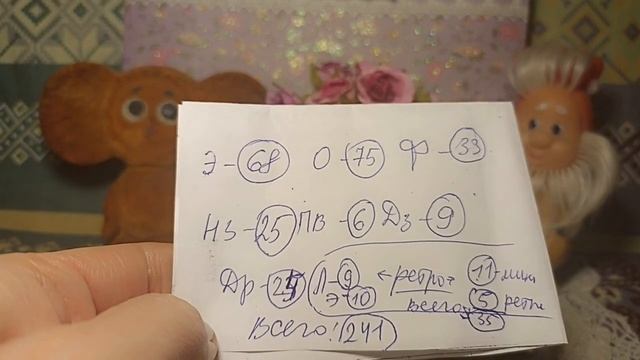 Э - 68 О - 75 Ф - 33
НЗ - 25 ПВ - 6 Дз - 9
Др - 25 Л - 9 ←ретро→ 11 - мин
Э - 10 всего 5 ретр
35
Всего: 241